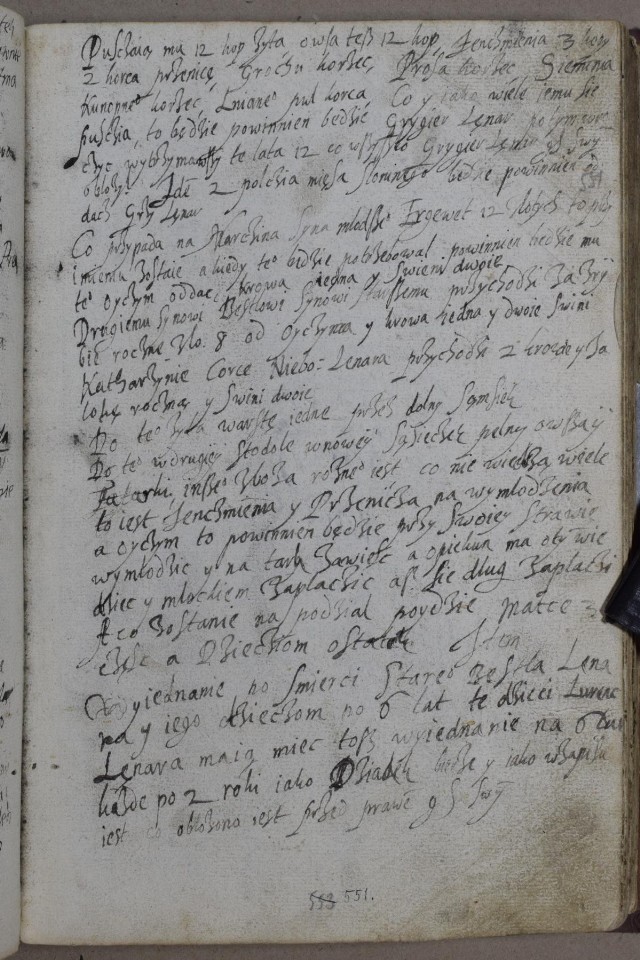 Puschaią mu 12 kop żyta owsa tesz 12 kop, Jenchmienia 3 kopy
2 korca pszenicę, Grochu korzec, Prosa korzec Siemienia
Kunopne° korzec, Lniane° puł korca, Co y iako wiele iemu sie
puschia, to będzie powinnien będzie Grygier Lęnar po tym wro
czyc wytrzymawszy te lata 12 co wszystko Grygier Lęnar
obłozyc Jdę 2 połchia mięsa słoninę° będzie powinnien o
dach Gry Lęnar
Co przypada na Marchina Syna młodsze° Ergewet 12 złotych to przy
imieniu zostaie a kiedy te° będzie potrzebował powinnien bedzie mu
te° oychym oddac, krowa iedna y swieni dwoie
Drugiemu synowi Bestłowi Synowi starszemu przychodzi
bic roczne zło. 8 od oychyma y krowa iedna y dwoie swini
Katharzynie Corce Niebo: Lenara przychodzi 2 krowie y ja
lowę roczną y swini dwoie
Do te° żyta warstę iednę przez dolny Sąmsiek
Do te° w drugiey stodole w nowey Sąsieczek pełny owssa y
Tatarki insze° zboza rozne° iest co nie wiedza wiele
to iest Jenchmienia y Przenicza na wymłodzenia
a oychym to powinnien będzie przy swoiey strawie
wymłodzic y na tark zawięsc a opiekun ma otrzwie
dziec y młockiem zapłacic asz sie dług zapłaci
A co zostanie na podział poydzie matce 3
częsc a Dzieciom ostatek Jtem
Wyiednanie po smierci stare° Bestla Lęna
ra y iego dzieciom po 6 lat te dzieci Lurenc
Lęnara maią miec tosz wyiednanie na 6 lat
każde po 2 roki iako Dziadek bierze y iako w zapisu
iest obłozono iest przed prawē
551.